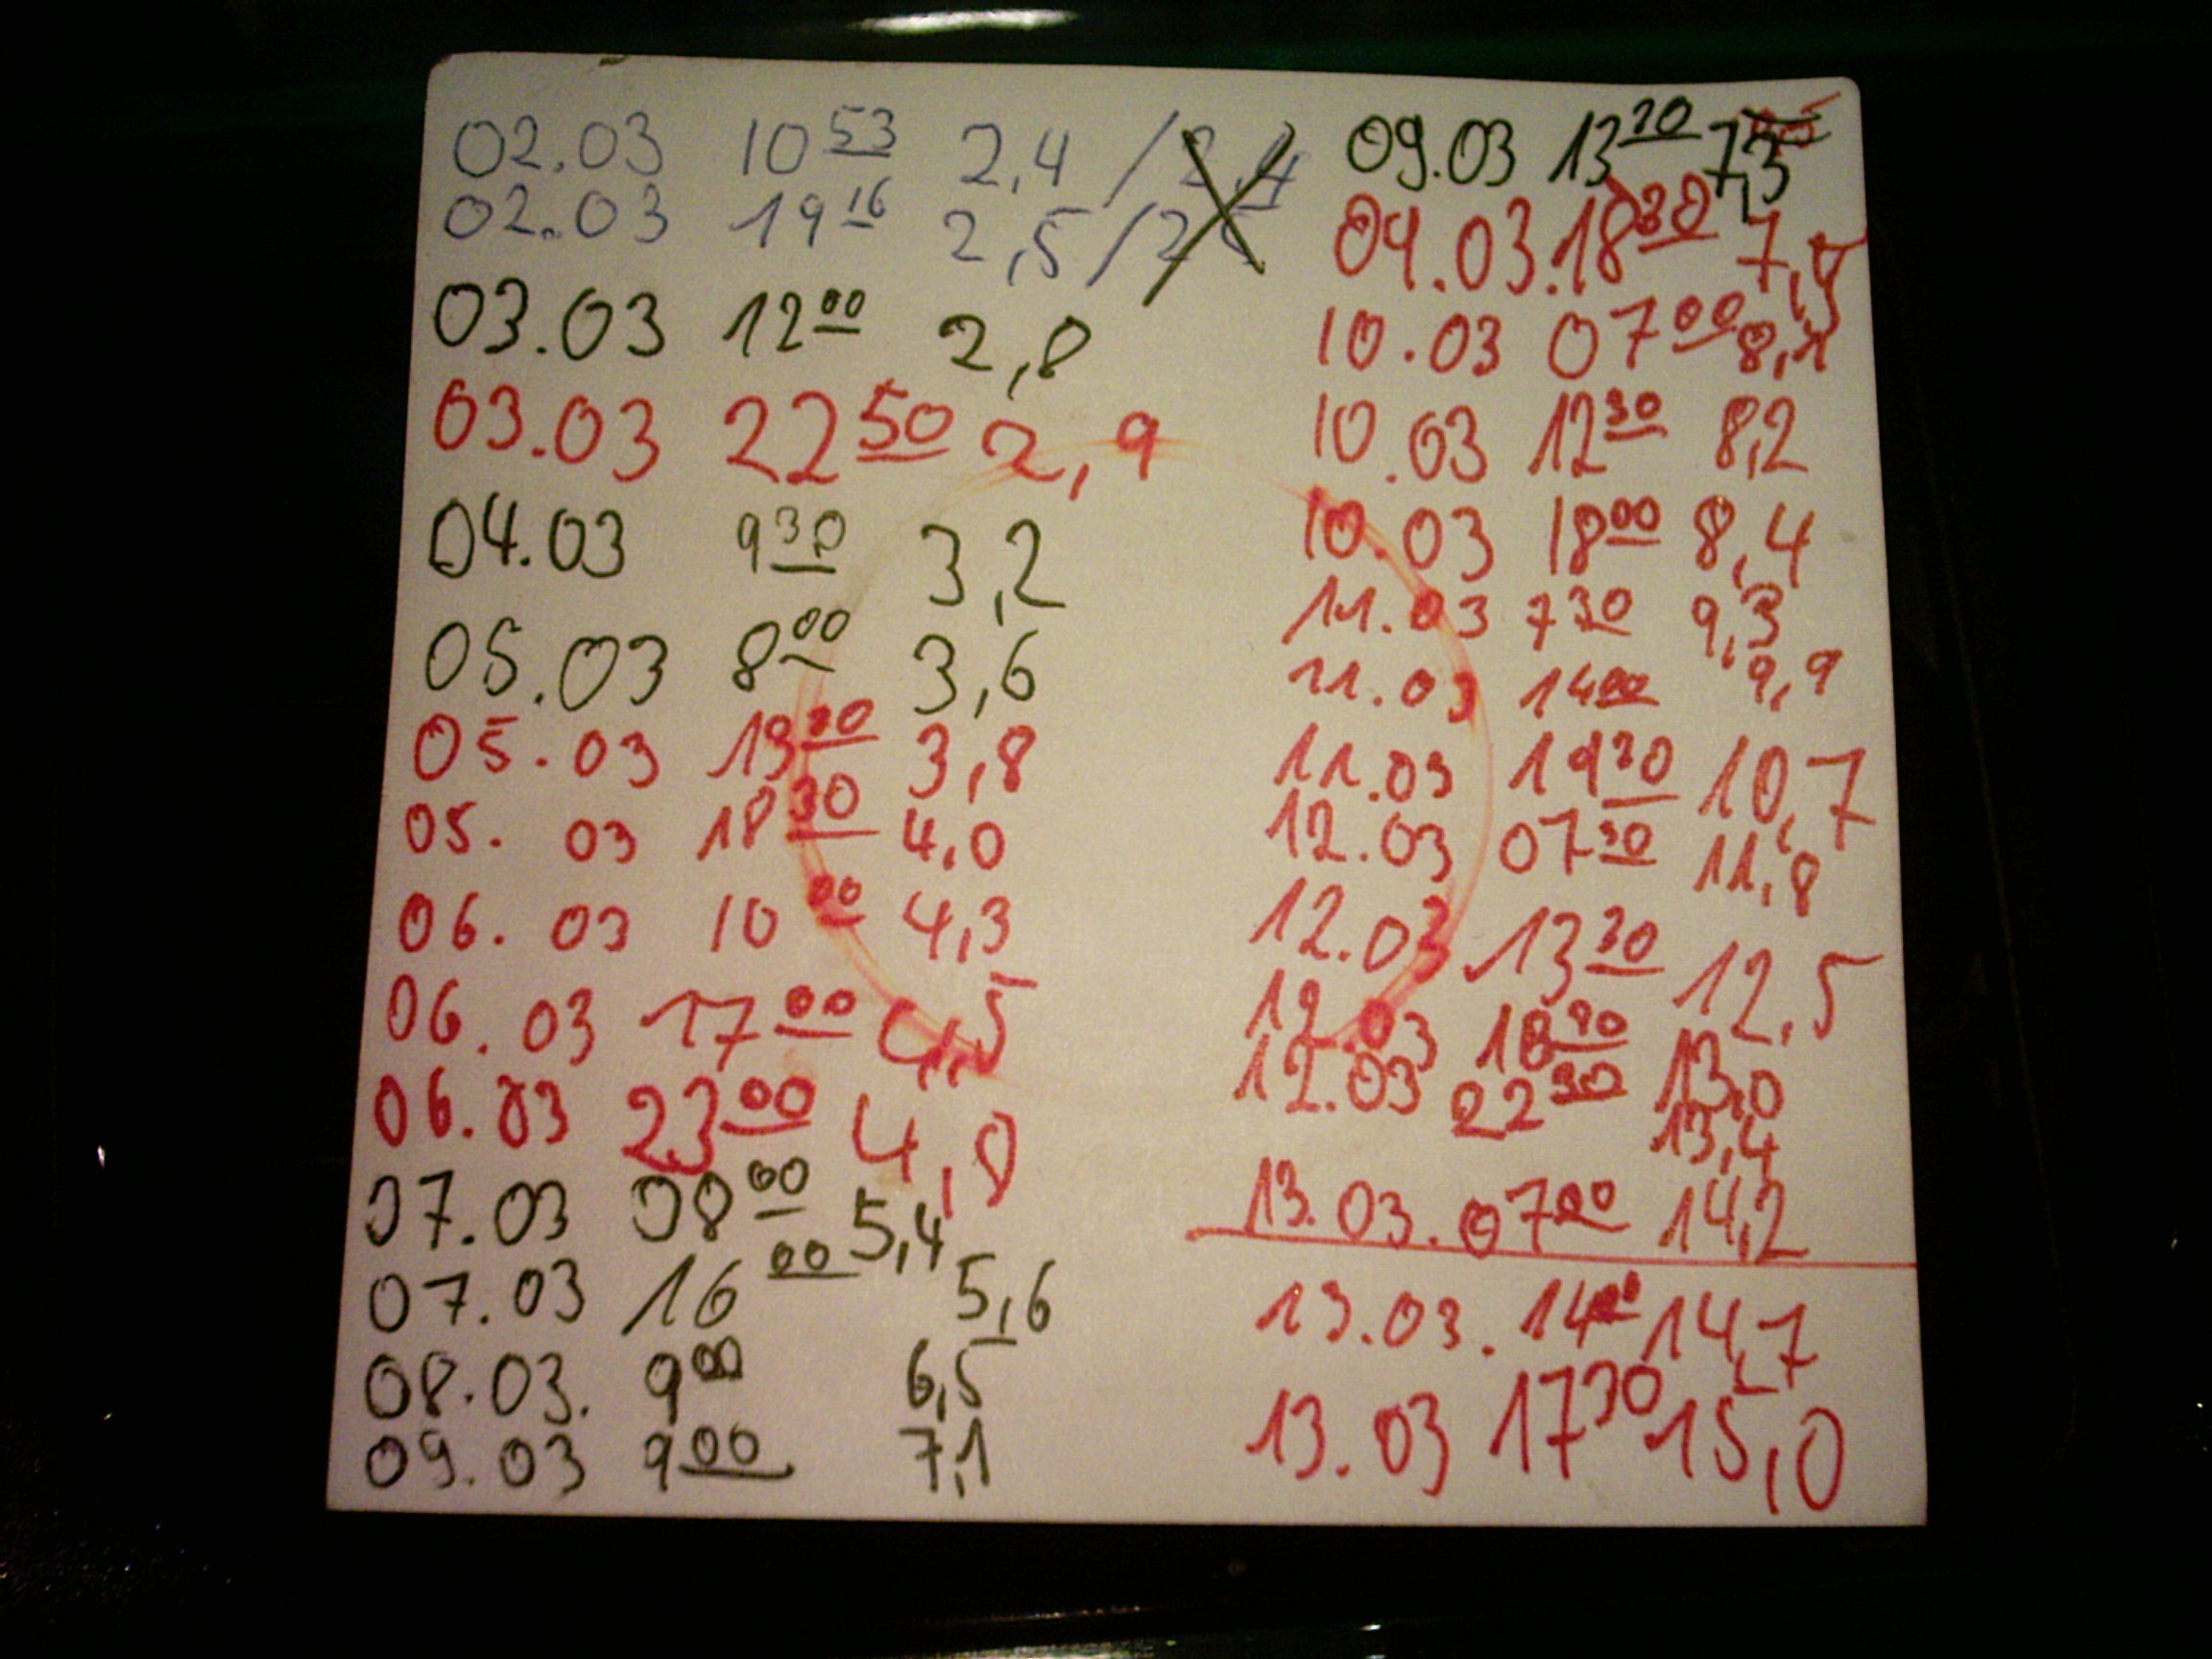 02.03 10 53 2,4 / 2,4
02.03 19 16 2,5 / 2
03.03 12 00 2,8
03.03 22 50 2,9
04.03 9 30 3,2
05.03 8 00 3,6
05.03 13 30 3,8
05.03 18 30 4,0
06.03 10 00 4,3
06.03 17 00 4,5
06.03 23 00 4,8
07.03 08 00 5,4
07.03 16 00 5,6
08.03. 9 00 6,5
09.03 9 00 7,1
09.03 13 20 7,3
09.03. 18 30
10.03 07 00
10.03 12 30 8,2
10.03 18 00 8,4
11.03 7 30 9,3
11.03 14 00 9,9
11.03 19 30 10,7
12.03 07 30 11,8
12.03 13 30 12,5
12.03 18 30 13,0
12.03 22 30 13,4
13.03. 07 00 14,2
13.03. 14 00 14,7
13.03 17 30 15,0